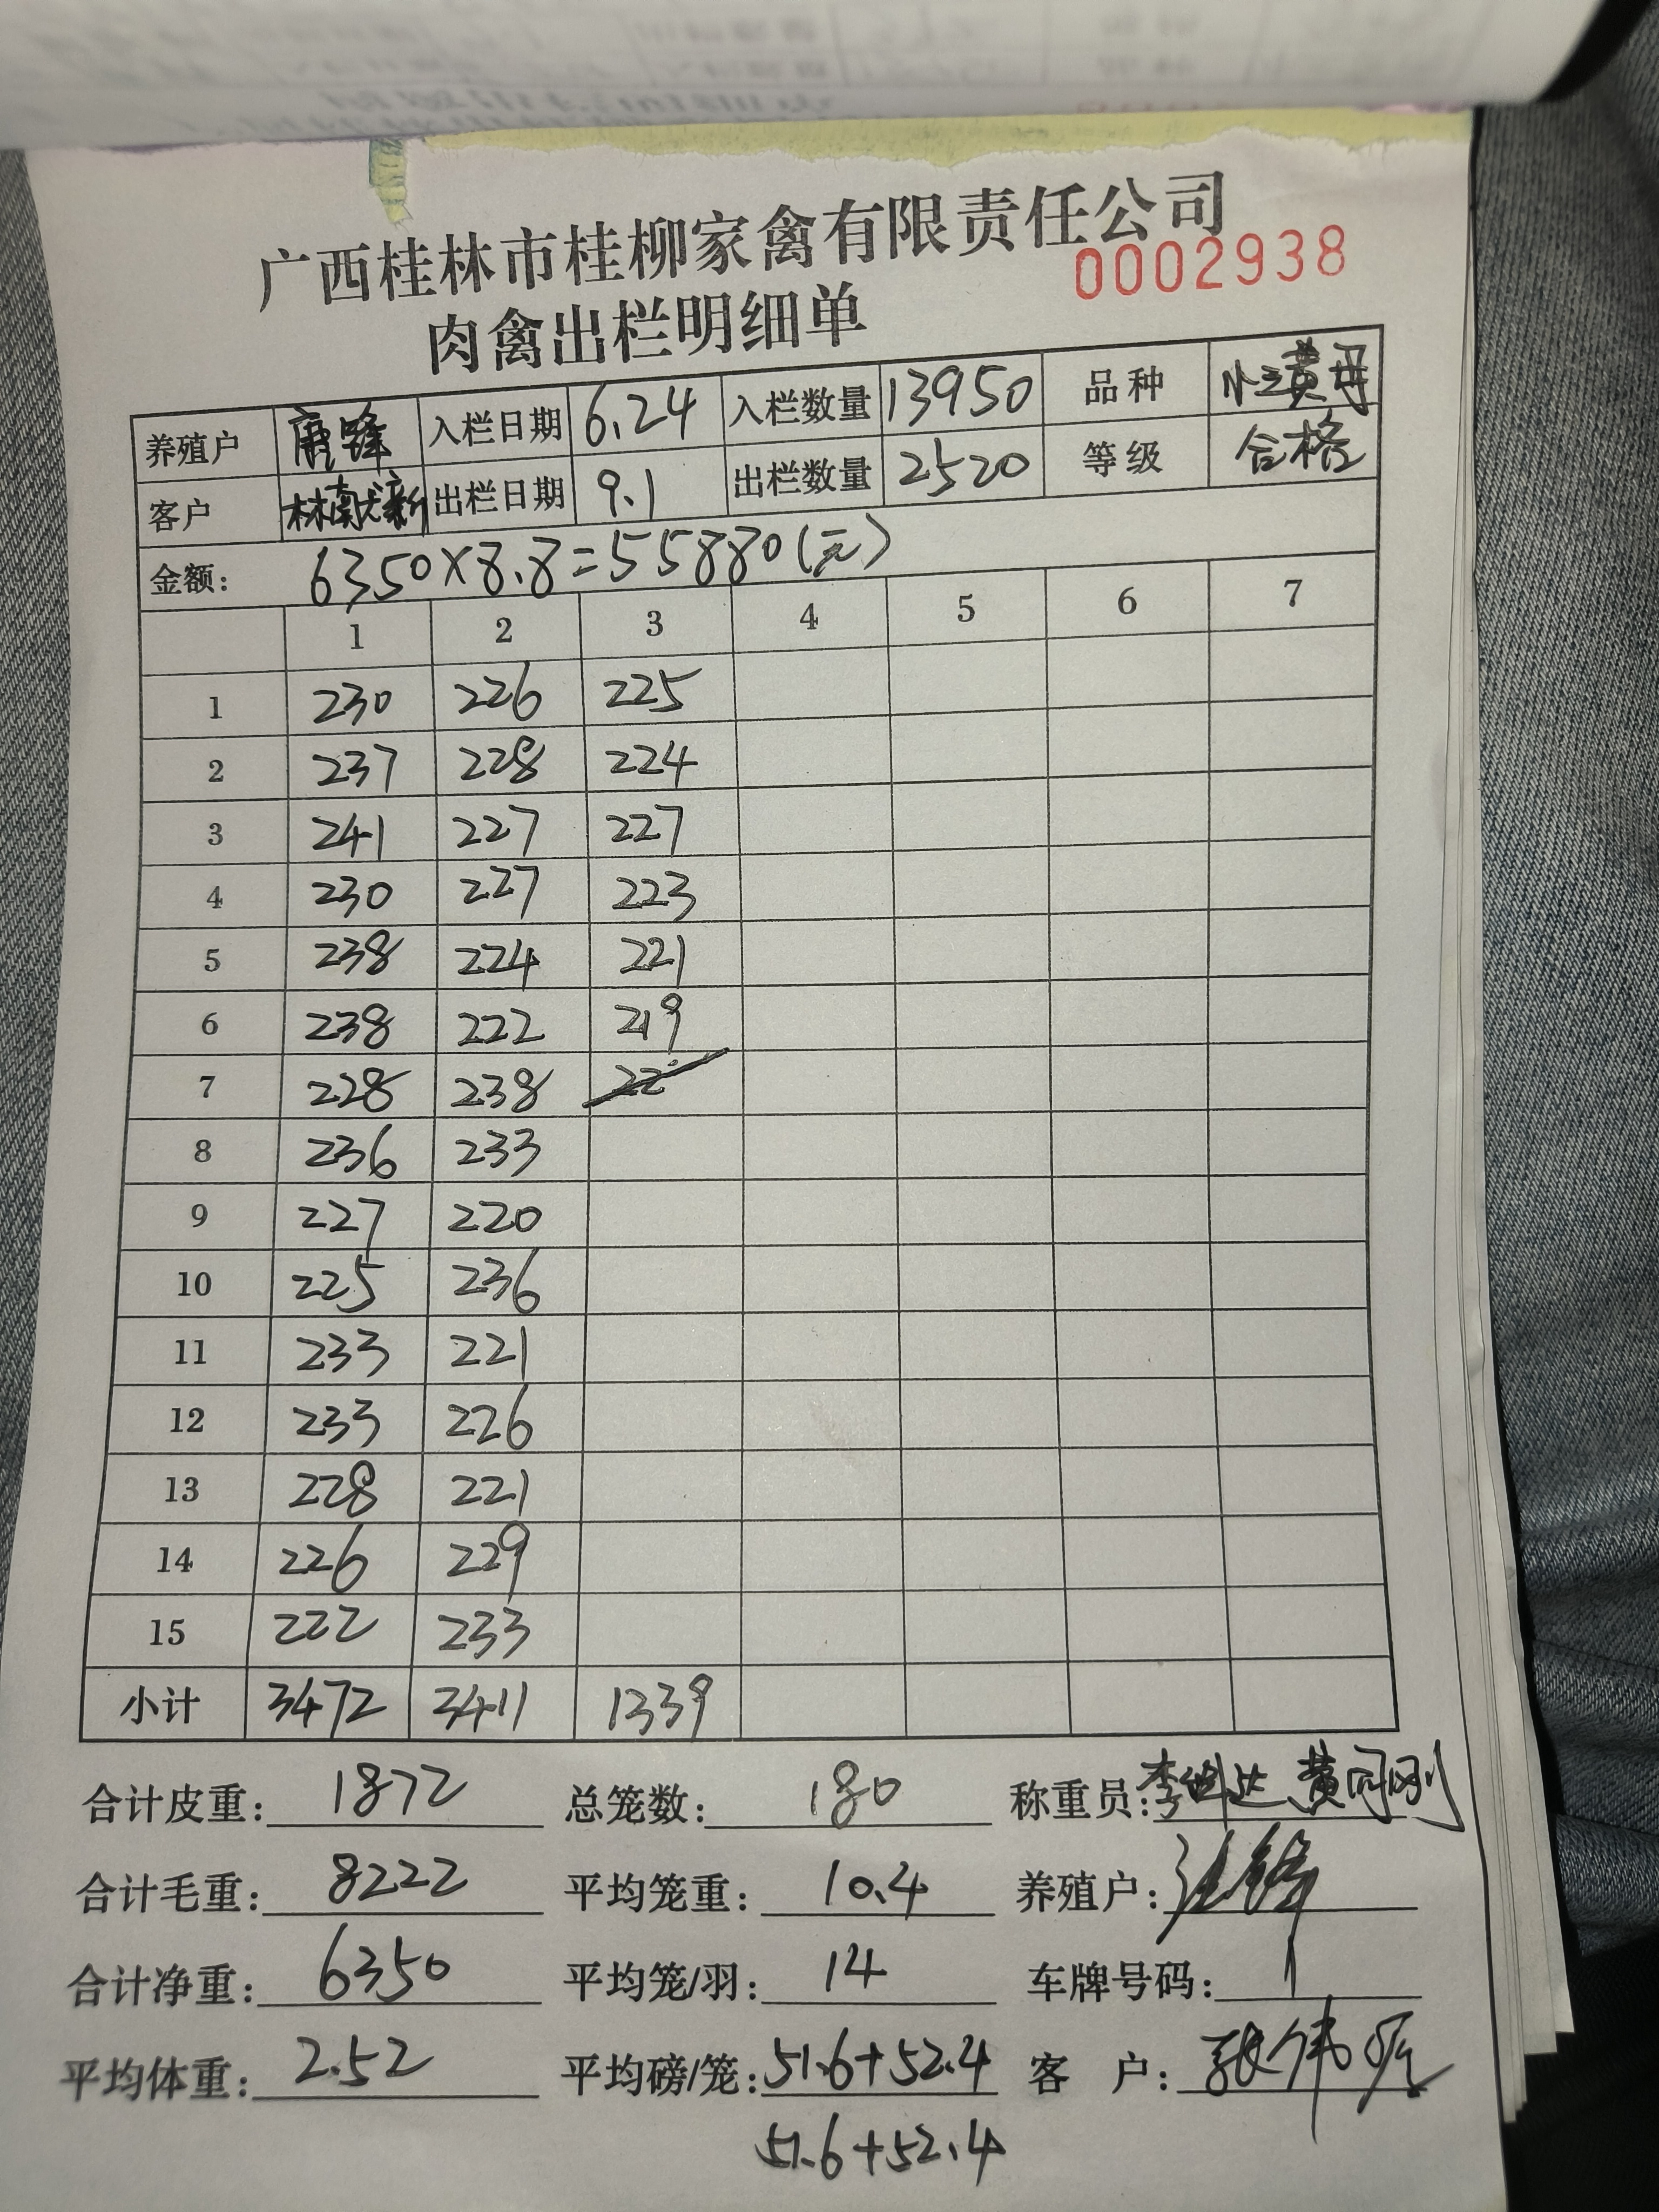 广西桂林市桂柳家禽有限责任公司
0002938
肉禽出栏明细单
养殖户 唐锋 入栏日期 6.24 入栏数量 13950 品种
客户 出栏日期 9.1 出栏数量 2520 等级 合格
金额: 6350×8.8=55880(元)
1 2 3 4 5 6 7
1 230 226 225
2 237 228 224
3 241 227 227
4 230 227 223
5 238 224 221
6 238 222 219
7 228 238
8 236 233
9 227 220
10 225 236
11 233 221
12 233 226
13 228 221
14 226 229
15 222 233
小计 3472 3411 1339
合计皮重: 1872 总笼数: 180 称重员:
合计毛重: 8222 平均笼重: 10.4 养殖户:
合计净重: 6350 平均笼/羽: 14 车牌号码:
平均体重: 2.52 平均磅/笼: 51.6+52.4 客户:
51.6+52.4